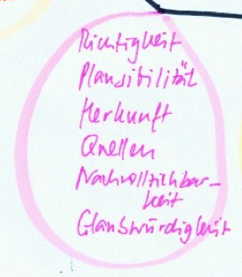 Richtigkeit
Plausibilität
Herkunft
Quellen
Nachvollziehbar-
keit
Glaubwürdigkeit